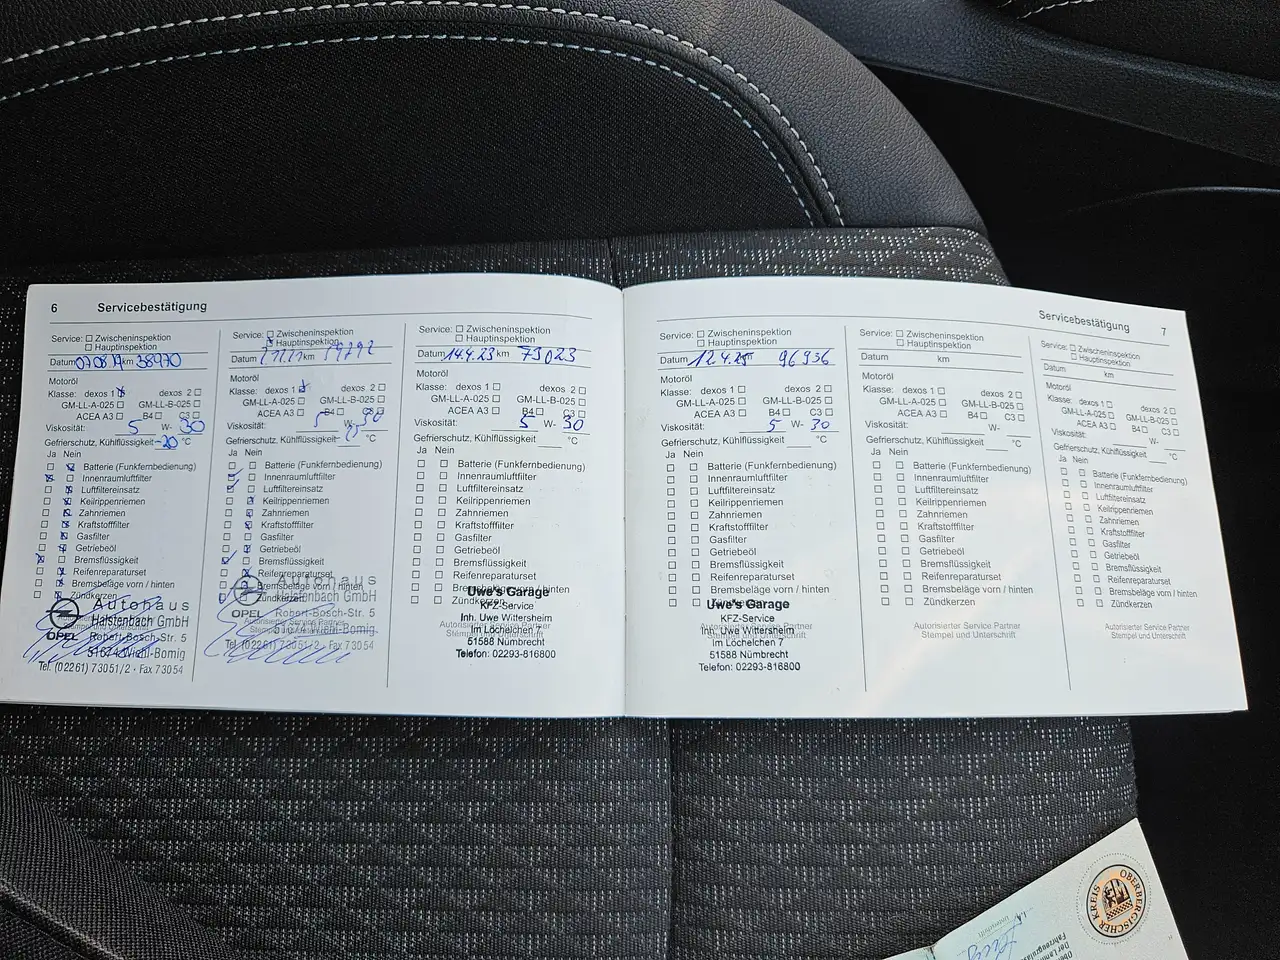 6 Servicebestätigung
Service: Zwischeninspektion
Hauptinspektion
Datum 07.08.19 km 38970
Motoröl
Klasse: dexos 1 dexos 2
GM-LL-A-025 GM-LL-B-025
ACEA A3 B4 C3
Viskosität: 5 W- 30
Gefrierschutz, Kühlflüssigkeit -20 °C
Ja Nein
Batterie (Funkfernbedienung)
Innenraumluftfilter
Luftfiltereinsatz
Keilrippenriemen
Zahnriemen
Kraftstofffilter
Gasfilter
Getriebeöl
Bremsflüssigkeit
Reifenreparaturset
Bremsbeläge vorn / hinten
Zündkerzen
Autohaus
Halstenbach GmbH
OPEL Robert-Bosch-Str. 5
51674 Wiehl-Bomig
Tel. (02261) 73051/2 · Fax 73054
Service: Zwischeninspektion
Hauptinspektion
Datum km
Motoröl
Klasse: dexos 1 dexos 2
GM-LL-A-025 GM-LL-B-025
ACEA A3 B4 C3
Viskosität: 5 W- 30
Gefrierschutz, Kühlflüssigkeit °C
Ja Nein
Batterie (Funkfernbedienung)
Innenraumluftfilter
Luftfiltereinsatz
Keilrippenriemen
Zahnriemen
Kraftstofffilter
Gasfilter
Getriebeöl
Bremsflüssigkeit
Reifenreparaturset
Bremsbeläge vorn / hinten
Zündkerzen
Autohaus
Halstenbach GmbH
OPEL Robert-Bosch-Str. 5
51674 Wiehl-Bomig
Tel. (02261) 73051/2 · Fax 73054
Service: Zwischeninspektion
Hauptinspektion
Datum 14.4.23 km 79023
Motoröl
Klasse: dexos 1 dexos 2
GM-LL-A-025 GM-LL-B-025
ACEA A3 B4 C3
Viskosität: 5 W- 30
Gefrierschutz, Kühlflüssigkeit °C
Ja Nein
Batterie (Funkfernbedienung)
Innenraumluftfilter
Luftfiltereinsatz
Keilrippenriemen
Zahnriemen
Kraftstofffilter
Gasfilter
Getriebeöl
Bremsflüssigkeit
Reifenreparaturset
Bremsbeläge vorn / hinten
Zündkerzen
Uwe's Garage
KFZ-Service
Inh. Uwe Wittersheim
Im Löchelchen 7
51588 Nümbrecht
Telefon: 02293-816800
Servicebestätigung 7
Service: Zwischeninspektion
Hauptinspektion
Datum 12.4.25 96936
Motoröl
Klasse: dexos 1 dexos 2
GM-LL-A-025 GM-LL-B-025
ACEA A3 B4 C3
Viskosität: 5 W- 30
Gefrierschutz, Kühlflüssigkeit °C
Ja Nein
Batterie (Funkfernbedienung)
Innenraumluftfilter
Luftfiltereinsatz
Keilrippenriemen
Zahnriemen
Kraftstofffilter
Gasfilter
Getriebeöl
Bremsflüssigkeit
Reifenreparaturset
Bremsbeläge vorn / hinten
Zündkerzen
Uwe's Garage
KFZ-Service
Inh. Uwe Wittersheim
Im Löchelchen 7
51588 Nümbrecht
Telefon: 02293-816800
Service: Zwischeninspektion
Hauptinspektion
Datum km
Motoröl
Klasse: dexos 1 dexos 2
GM-LL-A-025 GM-LL-B-025
ACEA A3 B4 C3
Viskosität: W-
Gefrierschutz, Kühlflüssigkeit °C
Ja Nein
Batterie (Funkfernbedienung)
Innenraumluftfilter
Luftfiltereinsatz
Keilrippenriemen
Zahnriemen
Kraftstofffilter
Gasfilter
Getriebeöl
Bremsflüssigkeit
Reifenreparaturset
Bremsbeläge vorn / hinten
Zündkerzen
Autorisierter Service Partner
Stempel und Unterschrift
Service: Zwischeninspektion
Hauptinspektion
Datum km
Motoröl
Klasse: dexos 1 dexos 2
GM-LL-A-025 GM-LL-B-025
ACEA A3 B4 C3
Viskosität: W-
Gefrierschutz, Kühlflüssigkeit °C
Ja Nein
Batterie (Funkfernbedienung)
Innenraumluftfilter
Luftfiltereinsatz
Keilrippenriemen
Zahnriemen
Kraftstofffilter
Gasfilter
Getriebeöl
Bremsflüssigkeit
Reifenreparaturset
Bremsbeläge vorn / hinten
Zündkerzen
Autorisierter Service Partner
Stempel und Unterschrift
OBERBERGISCHER KREIS